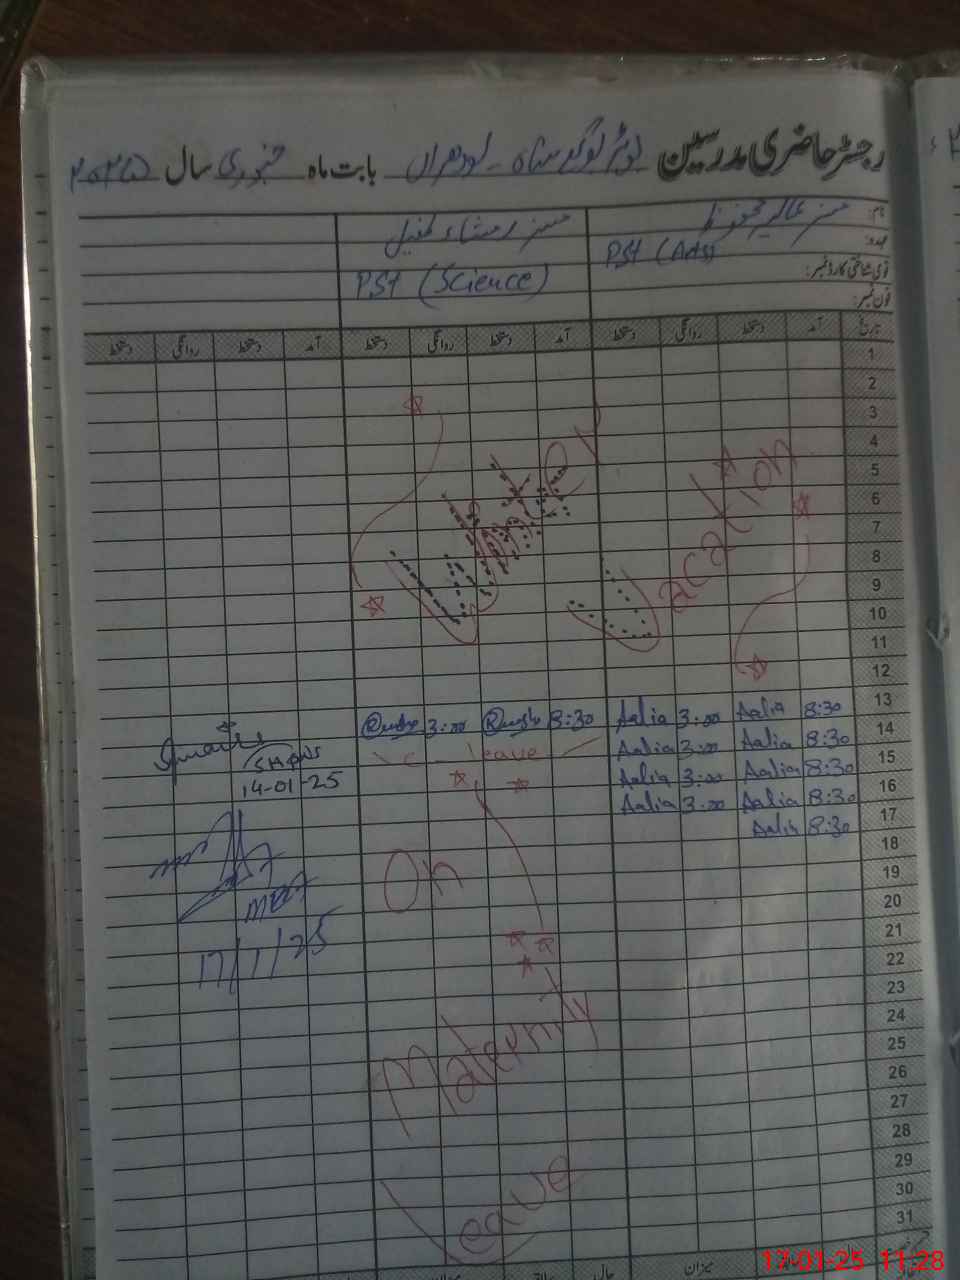 رجسٹر حاضری مدرسین لودھراں بابت ماہ جنوری سال ۲۰۲۵
نام: مسز عالیہ محفوظ
عہدہ: PST (Arts) PST (Science)
قومی شناختی کارڈ نمبر:
فون نمبر:
تاریخ آمد دستخط روانگی دستخط آمد دستخط روانگی دستخط آمد دستخط روانگی دستخط
1
2
3
4
5
6
7
8
9
10
11
12
Winter Vacation
13 8:30 Aalia 3:00 Aalia 8:30 3:00
14 8:30 Aalia 3:00 Aalia leave
15 8:30 Aalia 3:00 Aalia
16 8:30 Aalia 3:00 Aalia
17 8:30 Aalia
14-01-25
17/1/25
18
19
20
21
22
23
24
25
26
27
28
29
30
31
On
Maternity
Leave
میزان
17-01-25 11:28